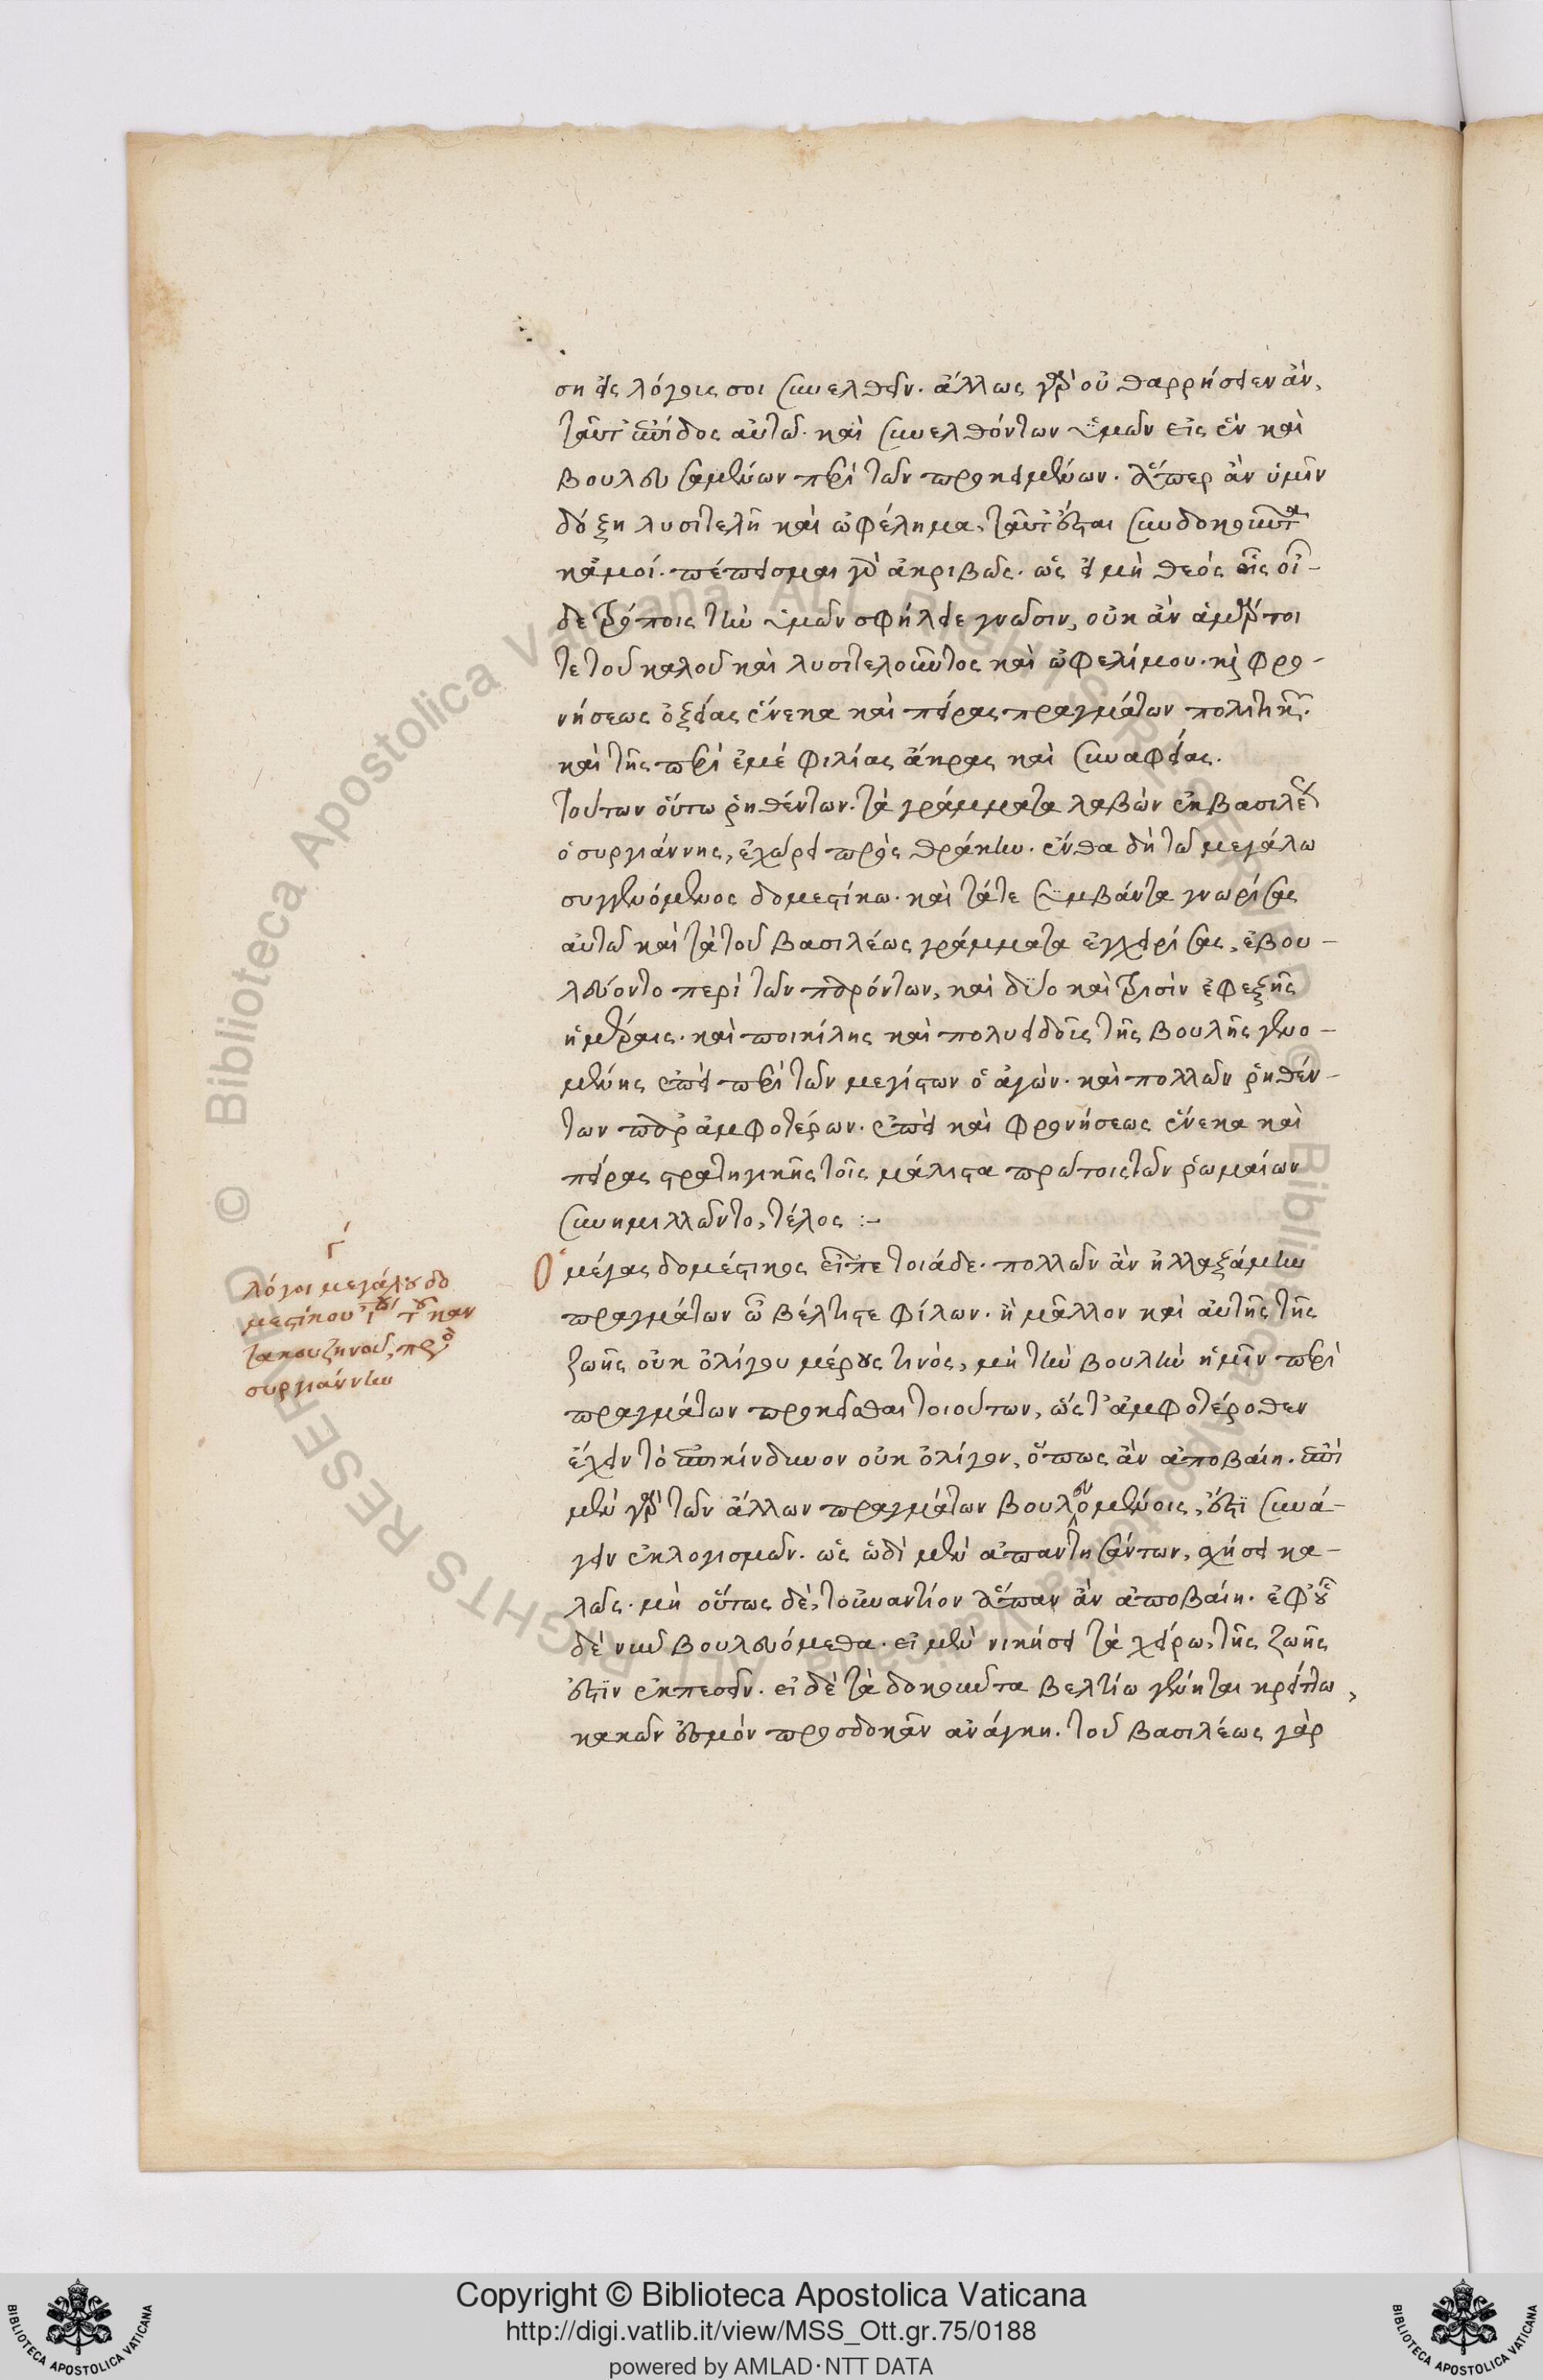 ση εἰς λόγοις σοι συνελθεῖν. ἄλλως γὰρ οὐ θαρρήσειεν ἄν,
ταῦτ' ἐπίδος αὐτῷ. καὶ συνελθόντων ὑμῶν εἰς ἓν καὶ
βουλευσαμένων περὶ τῶν προκειμένων. ἅπερ ἂν ὑμῖν
δόξη λυσιτελῆ καὶ ὠφέλημα, ταῦτ' ἔσται συνδοκοῦντα
κἀμοί. πέπεισμαι γὰρ ἀκριβῶς. ὡς εἰ μὴ θεὸς οἷς οἶ-
δε τρόποις τὴν ὑμῶν σφήλειε γνῶσιν, οὐκ ἂν ἁμάρτοι
τε τοῦ καλοῦ καὶ λυσιτελοῦντος καὶ ὠφελίμου. καὶ φρο-
νήσεως ὀξείας ἕνεκα καὶ πείρας πραγμάτων πολιτικῶν.
καὶ τῆς περὶ ἐμὲ φιλίας ἄκρας καὶ συναφείας.
τούτων οὕτω ῥηθέντων. τὰ γράμματα λαβὼν ἐκ βασιλέως
ὁ συργιάννης, ἐχώρει πρὸς θράκην. ἔνθα δὴ τῷ μεγάλω
συγγενόμενος δομεστίκω. καὶ τά τε συμβάντα γνωρίσας
αὐτῷ καὶ τὰ τοῦ βασιλέως γράμματα ἐγχειρίσας, ἐβου-
λεύοντο περὶ τῶν παρόντων, καὶ δύο καὶ τρισὶν ἐφεξῆς
ἡμέραις. καὶ ποικίλης καὶ πολυειδοῦς τῆς βουλῆς γενο-
μένης ἐπεὶ περὶ τῶν μεγίστων ὁ ἀγών. καὶ πολλῶν ῥηθέν-
των παρ' ἀμφοτέρων. ἐπεὶ καὶ φρονήσεως ἕνεκα καὶ
πείρας στρατηγικῆς τοῖς μάλιστα πρώτοις τῶν ῥωμαίων
συνημιλλῶντο, τέλος :–
Ὁ μέγας δομέστικος εἶπε τοιάδε. πολλῶν ἂν ἠλλαξάμην
πραγμάτων ὦ βέλτιστε φίλων. ἢ μᾶλλον καὶ αὐτῆς τῆς
ζωῆς οὐκ ὀλίγου μέρους τινός, μὴ τὴν βουλὴν ἡμῖν περὶ
πραγμάτων προκεῖσθαι τοιούτων, ὥστ' ἀμφοτέροθεν
ἔχειν τὸ ἐπικίνδυνον οὐκ ὀλίγον, ὅπως ἂν ἀποβαίη. ἐπὶ
μὲν γὰρ τῶν ἄλλων πραγμάτων βουλευομένοις, ἔστι συνά-
γειν ἐκ λογισμῶν. ὡς ὡδὶ μὲν ἀπαντησάντων, σχήσει κα-
λῶς. μὴ οὕτως δὲ, τοὐναντίον ἅπαν ἂν ἀποβαίη. ἐφ' οὗ
δὲ νῦν βουλευόμεθα. εἰ μὲν νικήσει τὰ χείρω, τῆς ζωῆς
ἔστιν ἐκπεσεῖν. εἰ δὲ τὰ δοκοῦντα βελτίω γένηται κρείττω,
κακῶν ἑσμὸν προσδοκᾶν ἀνάγκη. τοῦ βασιλέως γὰρ
γ΄
λόγοι μεγάλου δο
μεστίκου ἰω τοῦ καν
τακουζηνοῦ, πρὸς
συργιάννην
Copyright © Biblioteca Apostolica Vaticana
http://digi.vatlib.it/view/MSS_Ott.gr.75/0188
powered by AMLAD·NTT DATA
BIBLIOTECA APOSTOLICA VATICANA
BIBLIOTECA APOSTOLICA VATICANA
© Biblioteca Apostolica Vaticana ALL RIGHTS RESERVED
© Biblioteca Apostolica Vaticana ALL RIGHTS RESERVED